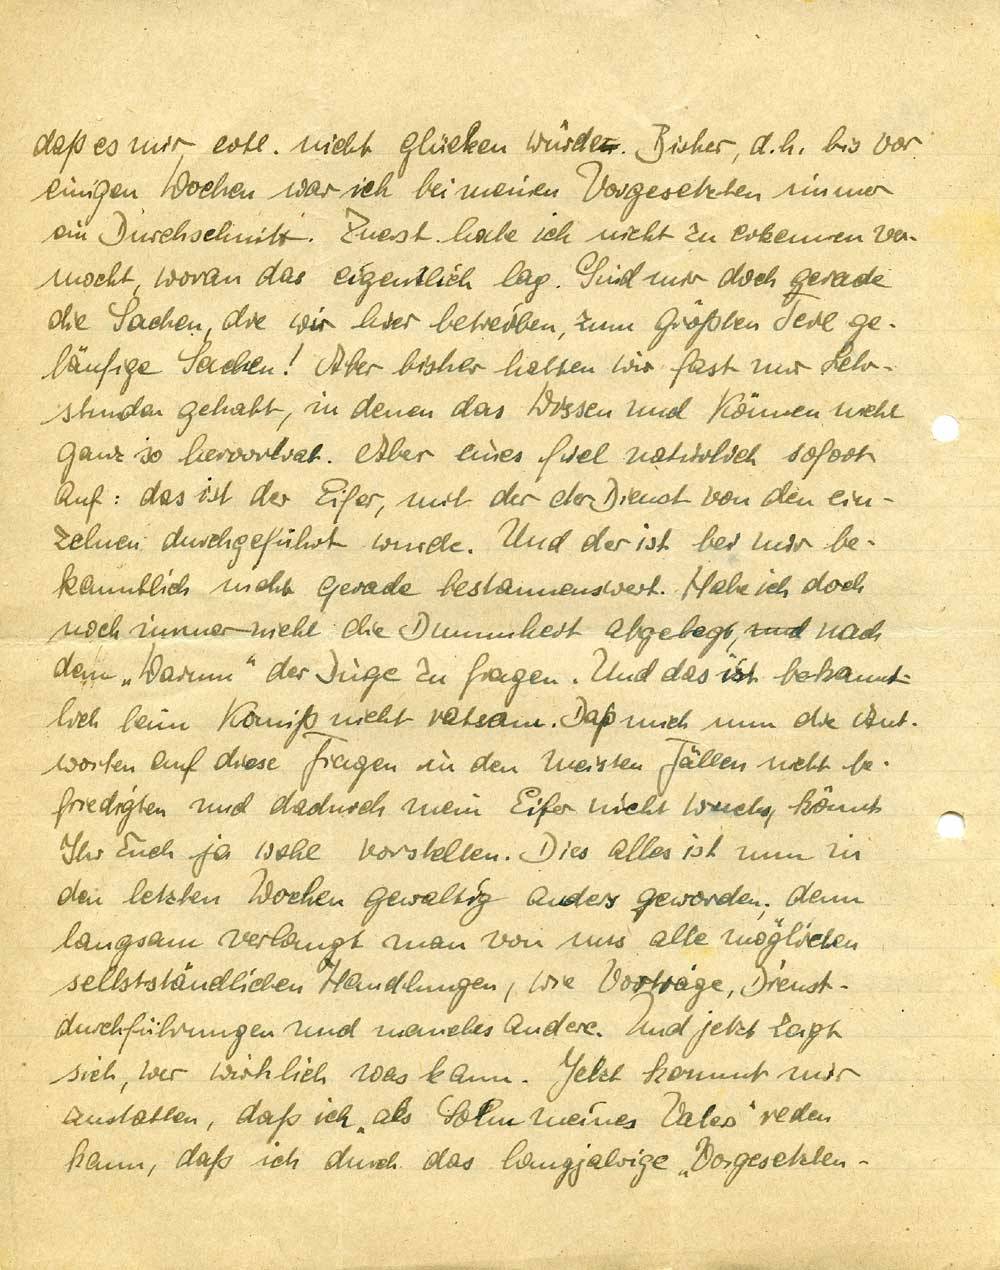 daß es mir evtl. nicht glücken würde. Bisher, d.h. bis vor
einigen Wochen war ich bei meinen Vorgesetzten immer
ein Durchschnitt. Zuerst habe ich nicht zu erkennen ver-
mocht, woran das eigentlich lag. Sind mir doch gerade
die Sachen, die wir hier betreiben, zum größten Teil ge-
läufige Sachen! Aber bisher hatten wir fast nur Lehr-
stunden gehabt, in denen das Wissen und Können nicht
ganz so hervortrat. Aber eines fiel natürlich sofort
auf: das ist der Eifer, mit der der Dienst von den ein-
zelnen durchgeführt wurde. Und der ist bei mir be-
kanntlich nicht gerade bestaunenswert. Habe ich doch
noch immer nicht die Dummheit abgelegt, und nach
dem „Warum“ der Dinge zu fragen. Und das ist bekannt-
lich beim Komiß nicht ratsam. Daß mich nun die Ant-
worten auf diese Fragen in den meisten Fällen nicht be-
friedigten und dadurch mein Eifer nicht wuchs, könnt
Ihr Euch ja wohl vorstellen. Dies alles ist nun in
den letzten Wochen gewaltig anders geworden, denn
langsam verlangt man von uns alle möglichen
selbstständlichen Handlungen, wie Vorträge, Dienst-
durchführungen und manches andere. Und jetzt zagt
sich, wer wirklich was kann. Jetzt kommt mir
zustatten, daß ich „als Sohn meines Vaters“ reden
kann, daß ich durch das langjährige „Vorgesetzten-